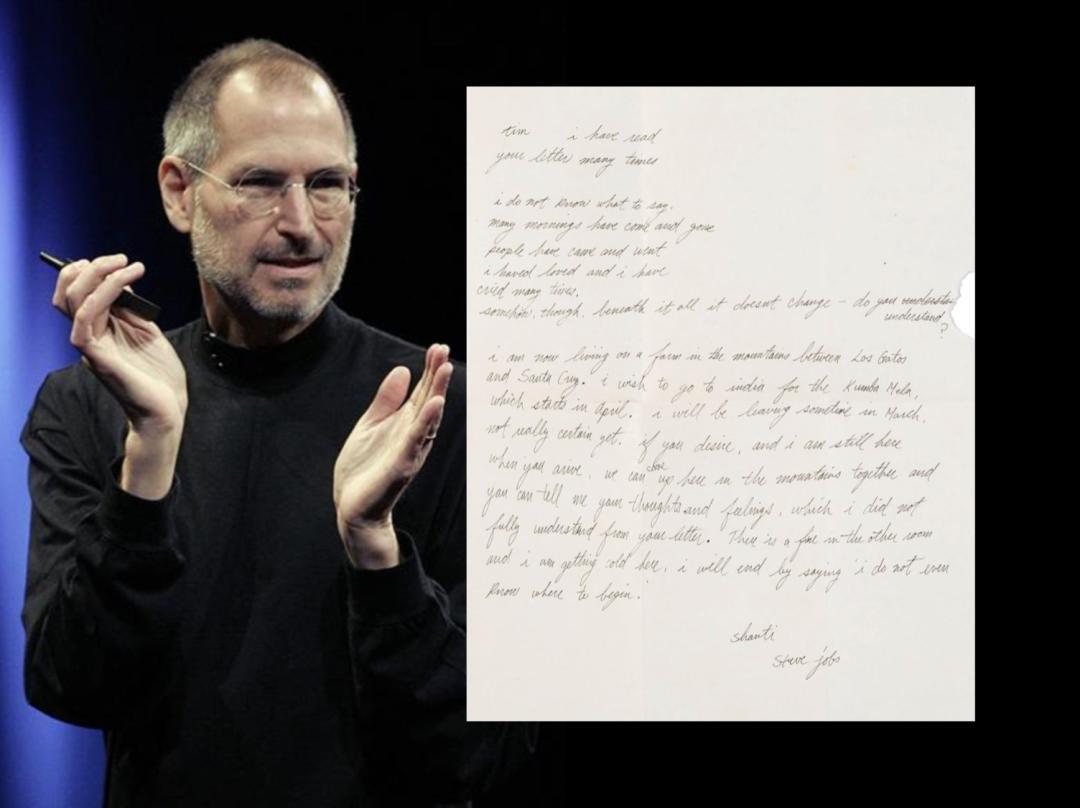 tim i have read
your letter many times
i do not know what to say.
many mornings have come and gone
people have came and went
i haved loved and i have
cried many times.
somehow, though, beneath it all it doesnt change – do you understan
understand
?
i am now living on a farm in the mountains between Los Gatos
and Santa Cruz. i wish to go to india for the Kumba Mela,
which starts in April. i will be leaving sometime in March,
not really certain yet. if you desire, and i am still here
when you arive, we can come up here in the mountains together and
you can tell me your thoughts and feelings, which i did not
fully understand from your letter. There is a fire in the other room
and i am getting cold here. i will end by saying 'i do not even
know where to begin.'
shanti
steve jobs